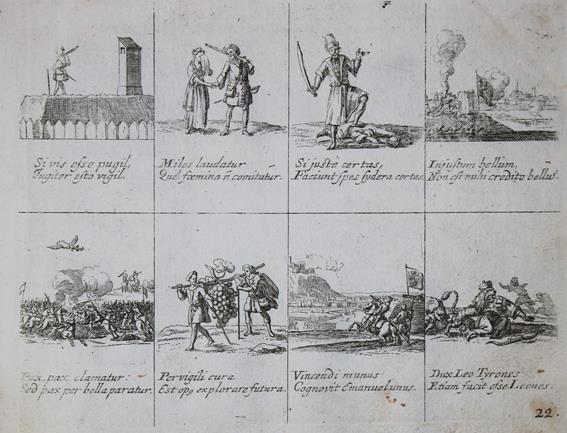 Si vis esse pugil,
Jugiter esto vigil.
Miles laudatur
Quē fœmina ñ comitatur.
Si justè certas,
Faciunt spes sydera certas.
Injustum bellum,
Non est mihi credito bellū.
Pax, pax clamatur.
Sed pax per bella paratur.
Pervigili cura
Est opꝰ explorare futura.
Vincendi munus
Cognovit Emanuel unus.
Dux Leo Tyrones
Etiam facit esse Leones.
22.